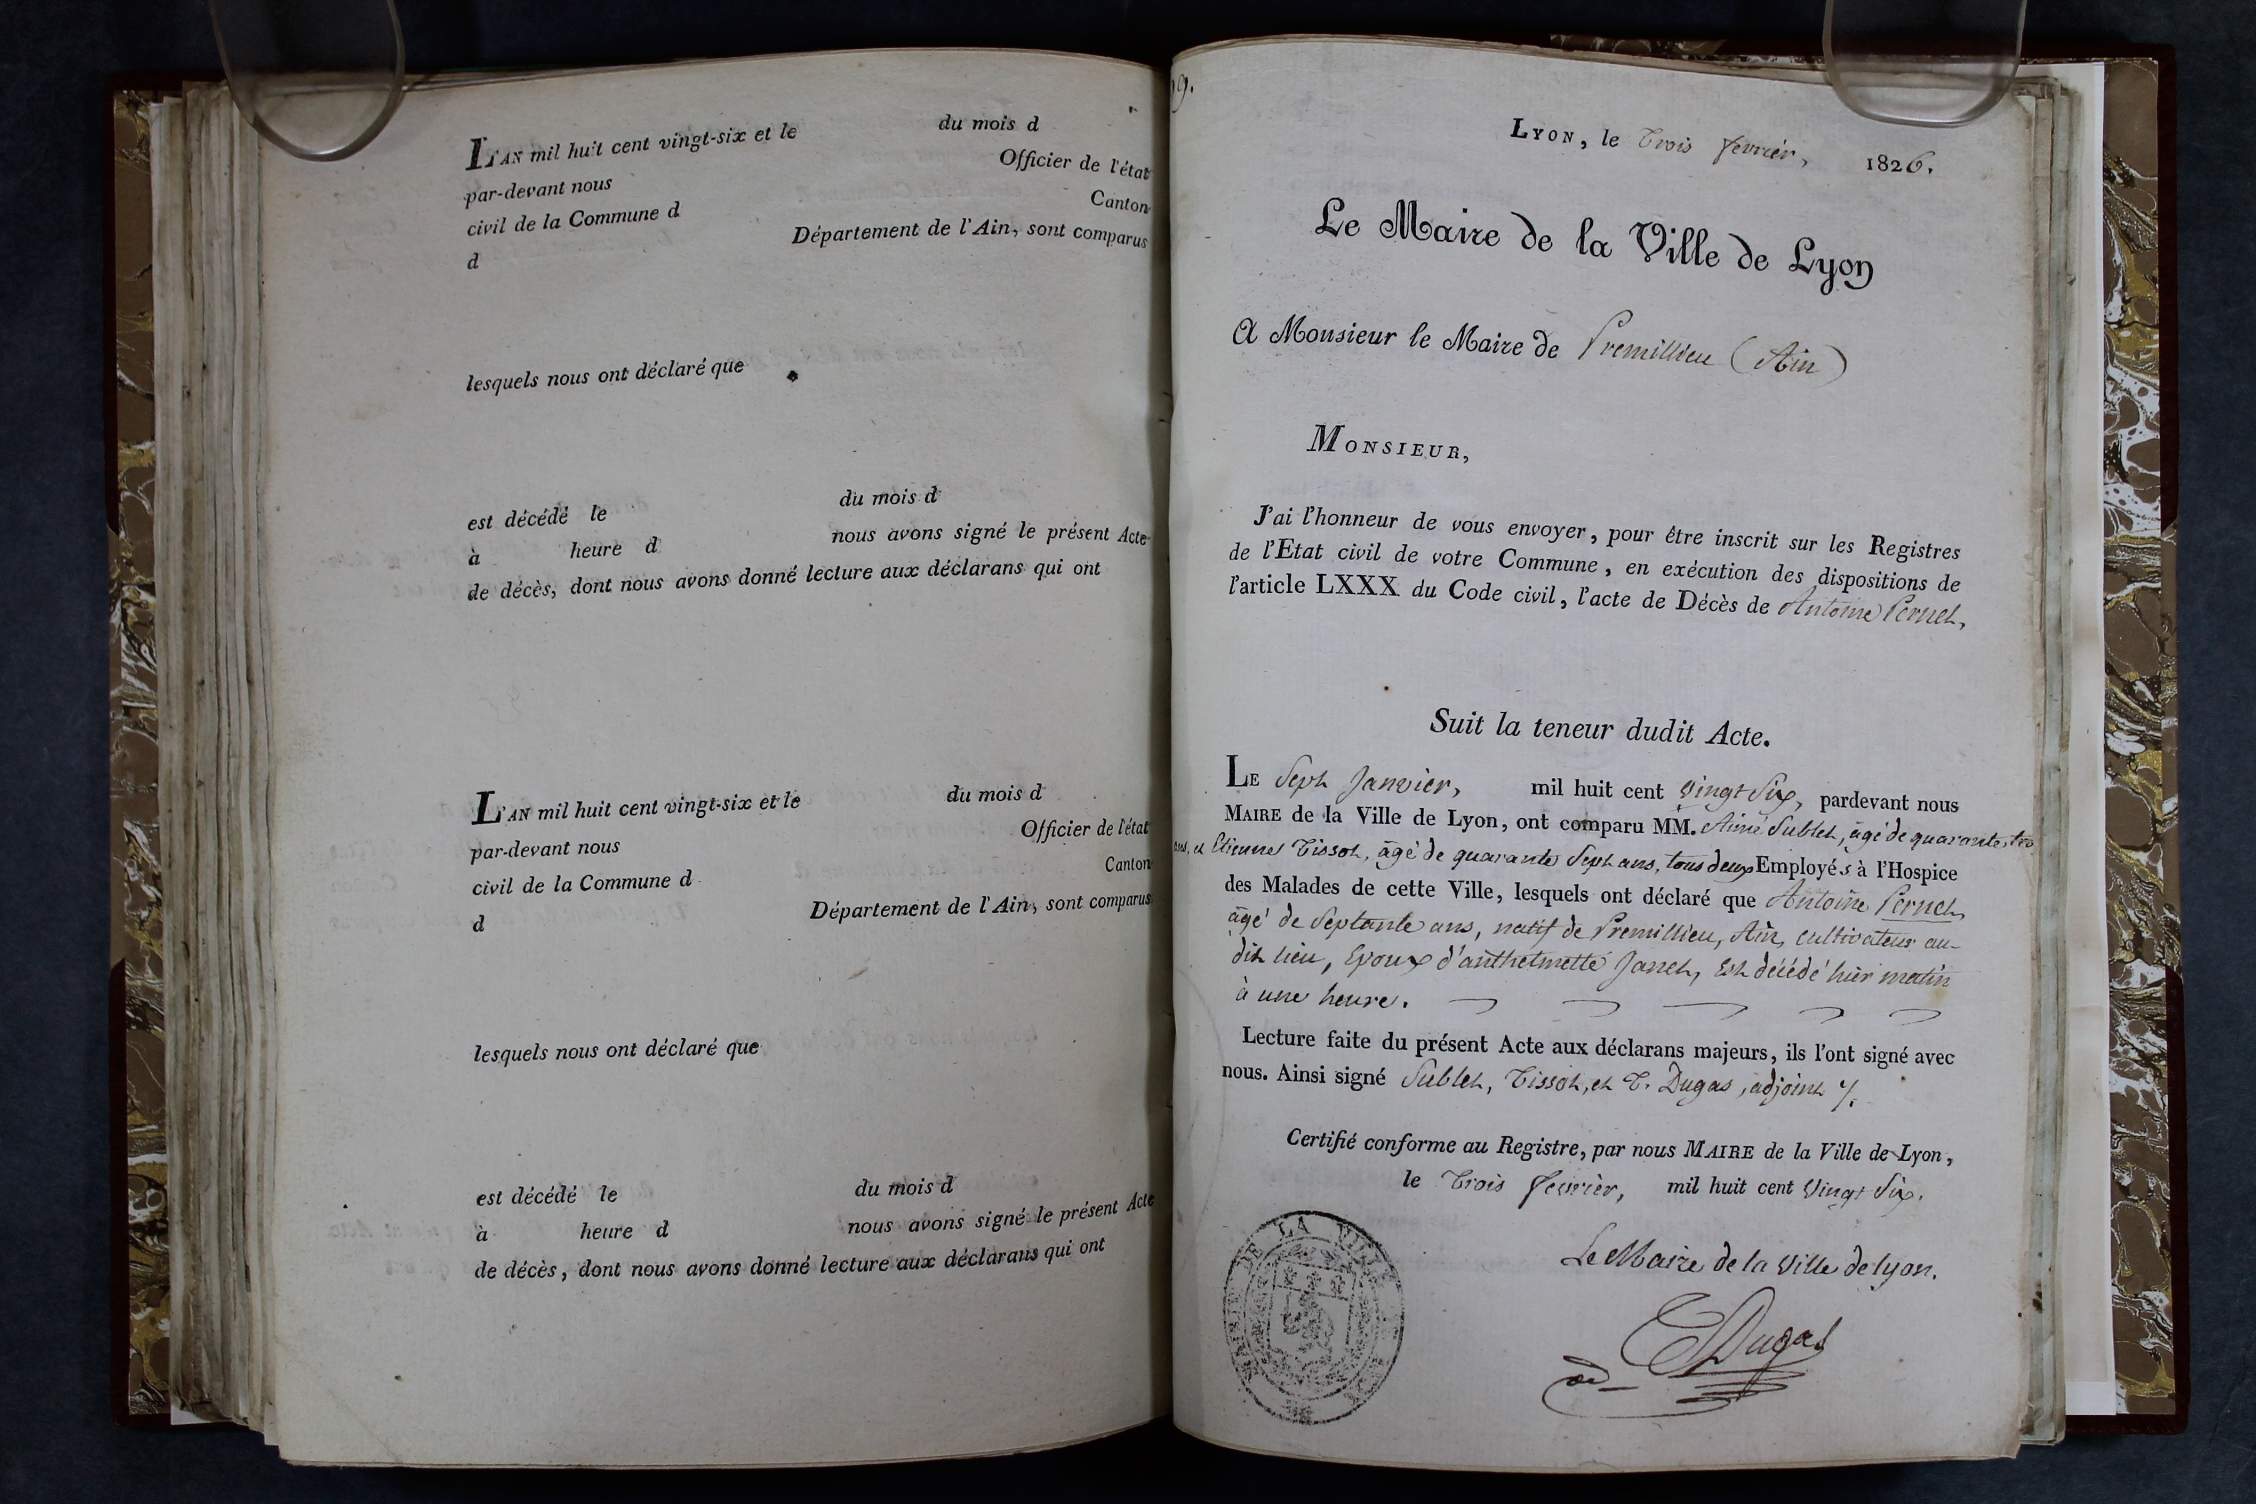 L'AN mil huit cent vingt-six et le du mois d
par-devant nous Officier de l'état
civil de la Commune d Canton
d Département de l'Ain, sont comparus
lesquels nous ont déclaré que
est décédé le du mois d
à heure d nous avons signé le présent Acte
de décès, dont nous avons donné lecture aux déclarans qui ont
L'AN mil huit cent vingt-six et le du mois d
par-devant nous Officier de l'état
civil de la Commune d Canton
d Département de l'Ain, sont comparus
lesquels nous ont déclaré que
est décédé le du mois d
à heure d nous avons signé le présent Acte
de décès, dont nous avons donné lecture aux déclarans qui ont
9.
LYON, le Trois fevrier, 1826.
Le Maire de la Ville de Lyon
A Monsieur le Maire de Premillieu (Ain)
MONSIEUR,
J'ai l'honneur de vous envoyer, pour être inscrit sur les Registres
de l'Etat civil de votre Commune, en exécution des dispositions de
l'article LXXX du Code civil, l'acte de Décès de Antoine Pernet,
Suit la teneur dudit Acte.
LE Sept Janvier, mil huit cent Vingt Six, pardevant nous
MAIRE de la Ville de Lyon, ont comparu MM. Aimé Sublet, âgé de quarante trois
ans, et Etienne Tissot, âgé de quarante Sept ans, tous deux Employés à l'Hospice
des Malades de cette Ville, lesquels ont déclaré que Antoine Pernet,
âgé de Septante ans, natif de Premillieu, Ain, Cultivateur au-
dit lieu, Epoux d'anthelmette Janet, Est décédé hier matin
à une heure.
Lecture faite du présent Acte aux déclarans majeurs, ils l'ont signé avec
nous. Ainsi signé Sublet, Tissot, et T. Dugas, adjoint
Certifié conforme au Registre, par nous MAIRE de la Ville de Lyon,
le Trois fevrier, mil huit cent Vingt Six.
Le Maire de la Ville de lyon.
TDugas
ad
MAIRIE DE LA VILLE